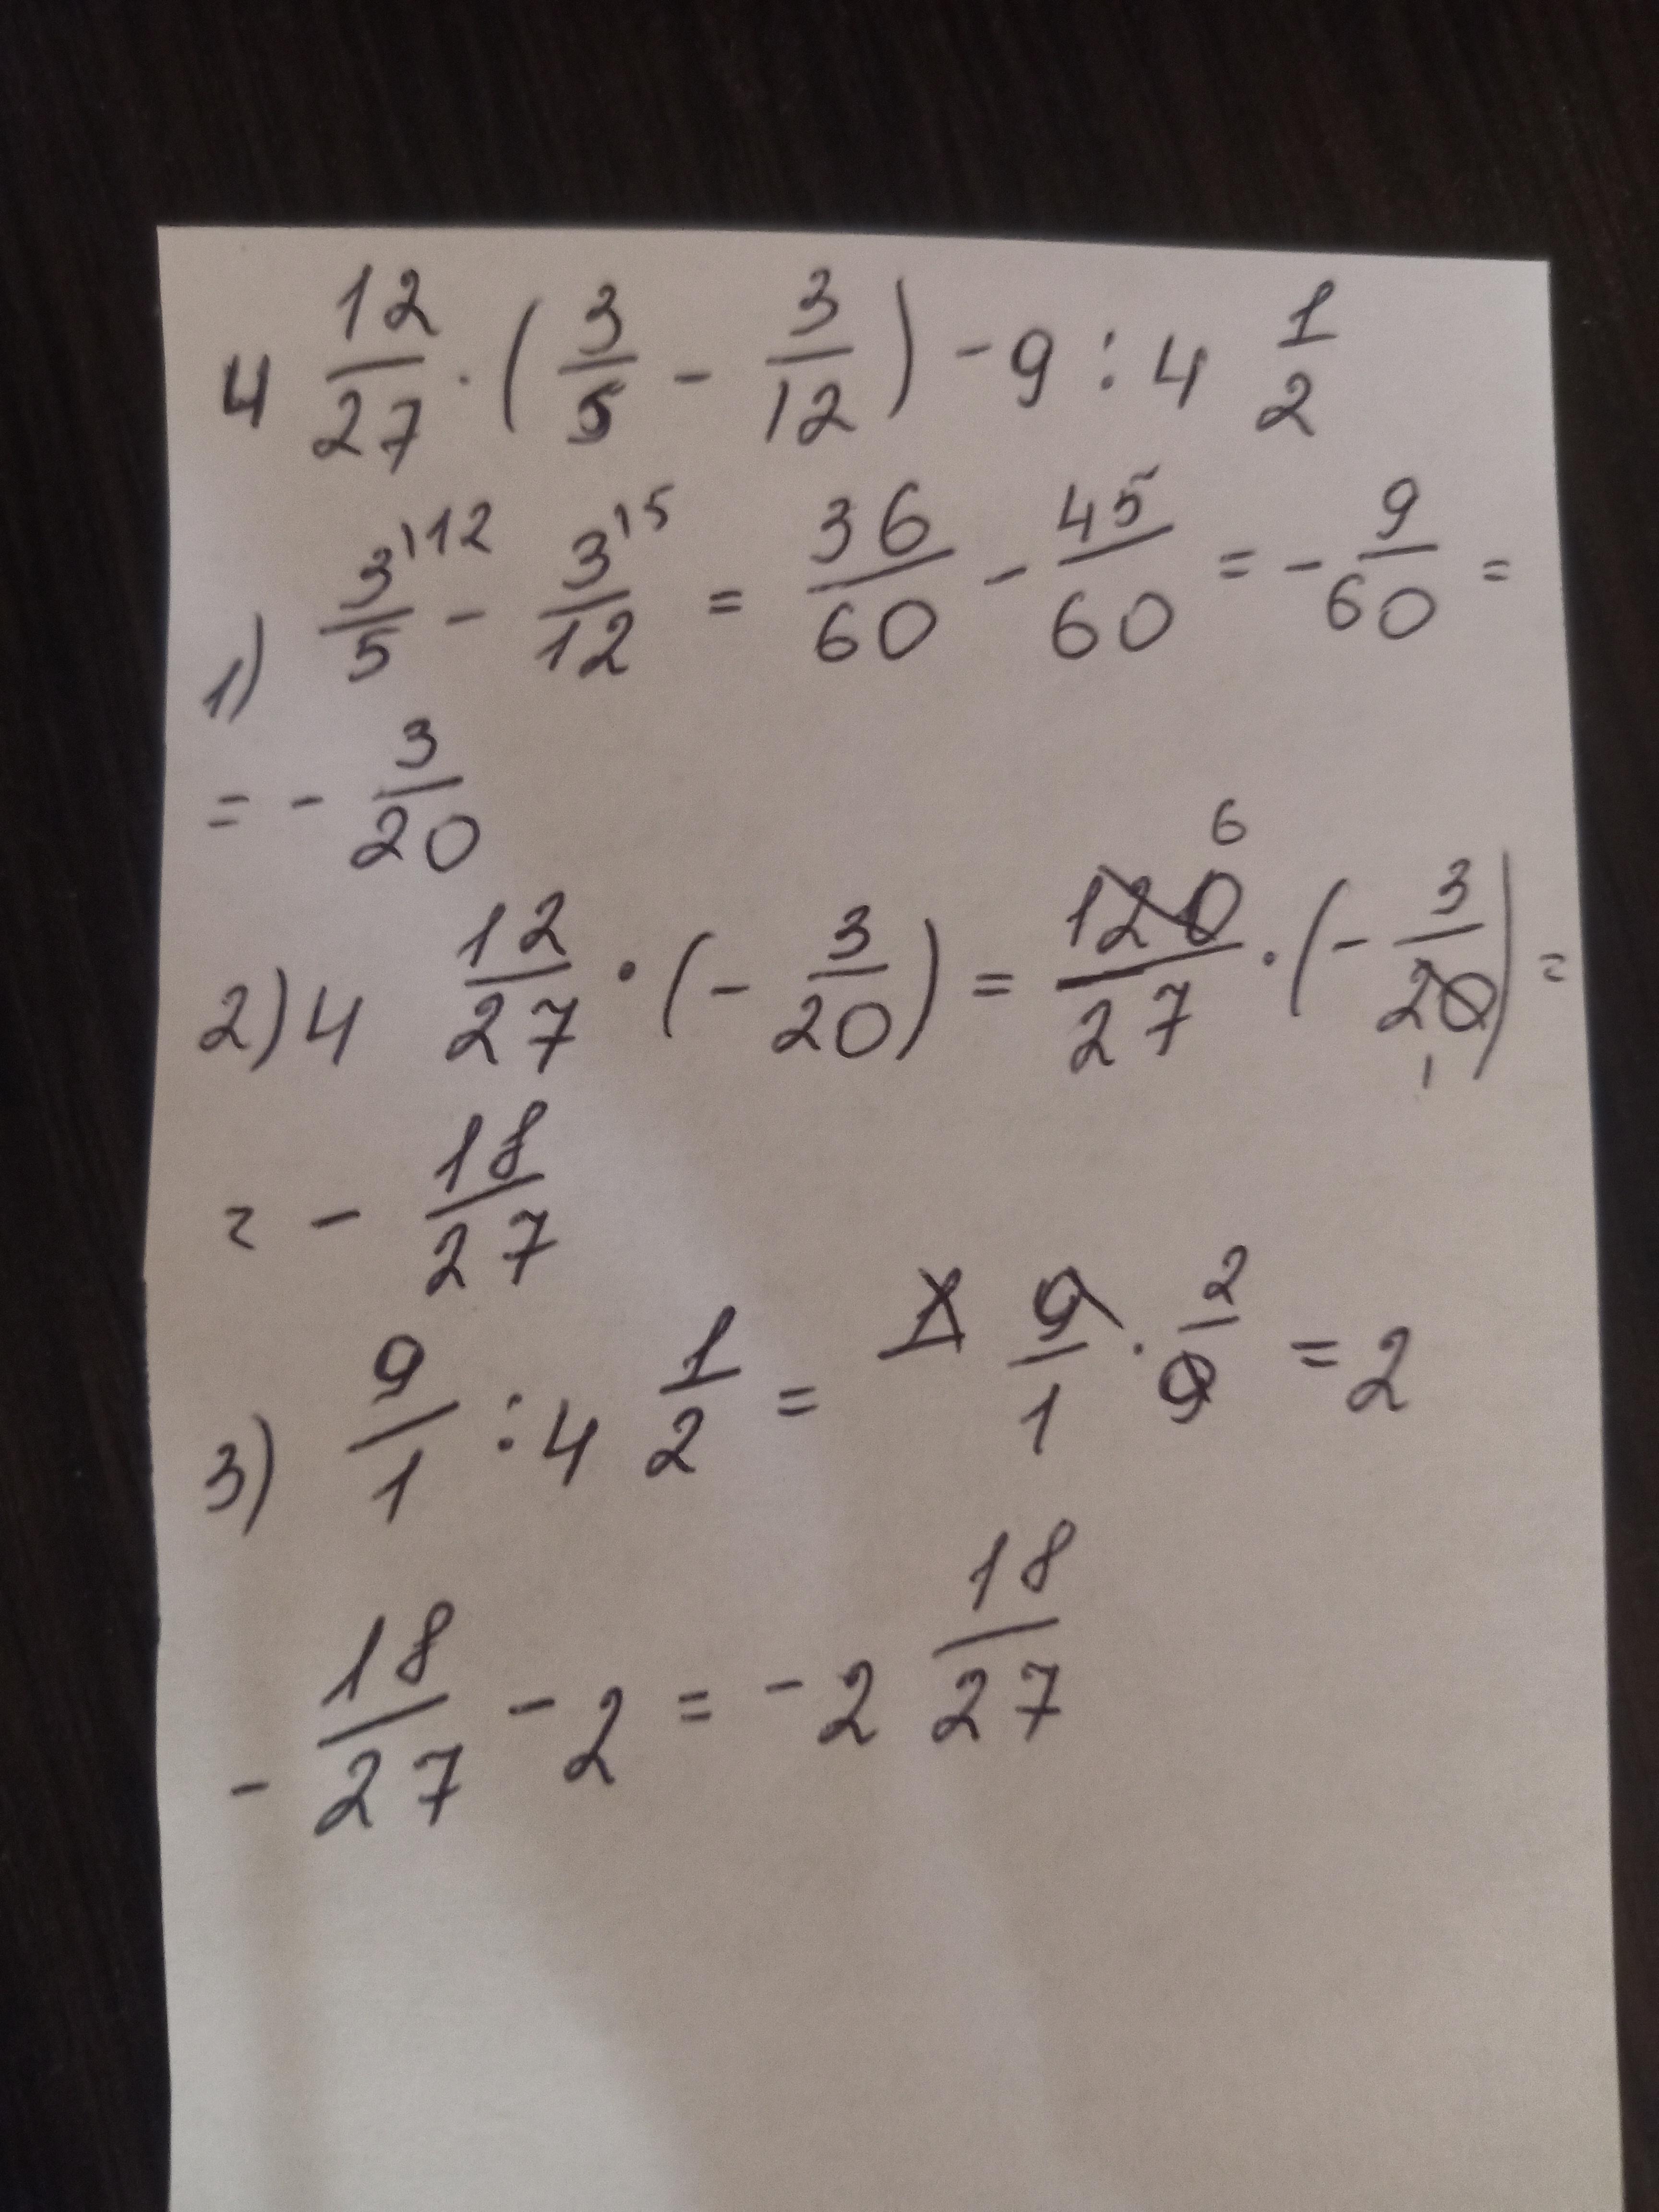 4 12/27 · (3/5 - 3/12) - 9 : 4 1/2
1) 3^12/5 - 3^15/12 = 36/60 - 45/60 = - 9/60 =
= - 3/20
2) 4 12/27 · (- 3/20) = 120 6/27 · (- 3/20 1) =
= - 18/27
3) 9/1 : 4 1/2 = 9/1 · 2/9 = 2
- 18/27 - 2 = - 2 18/27